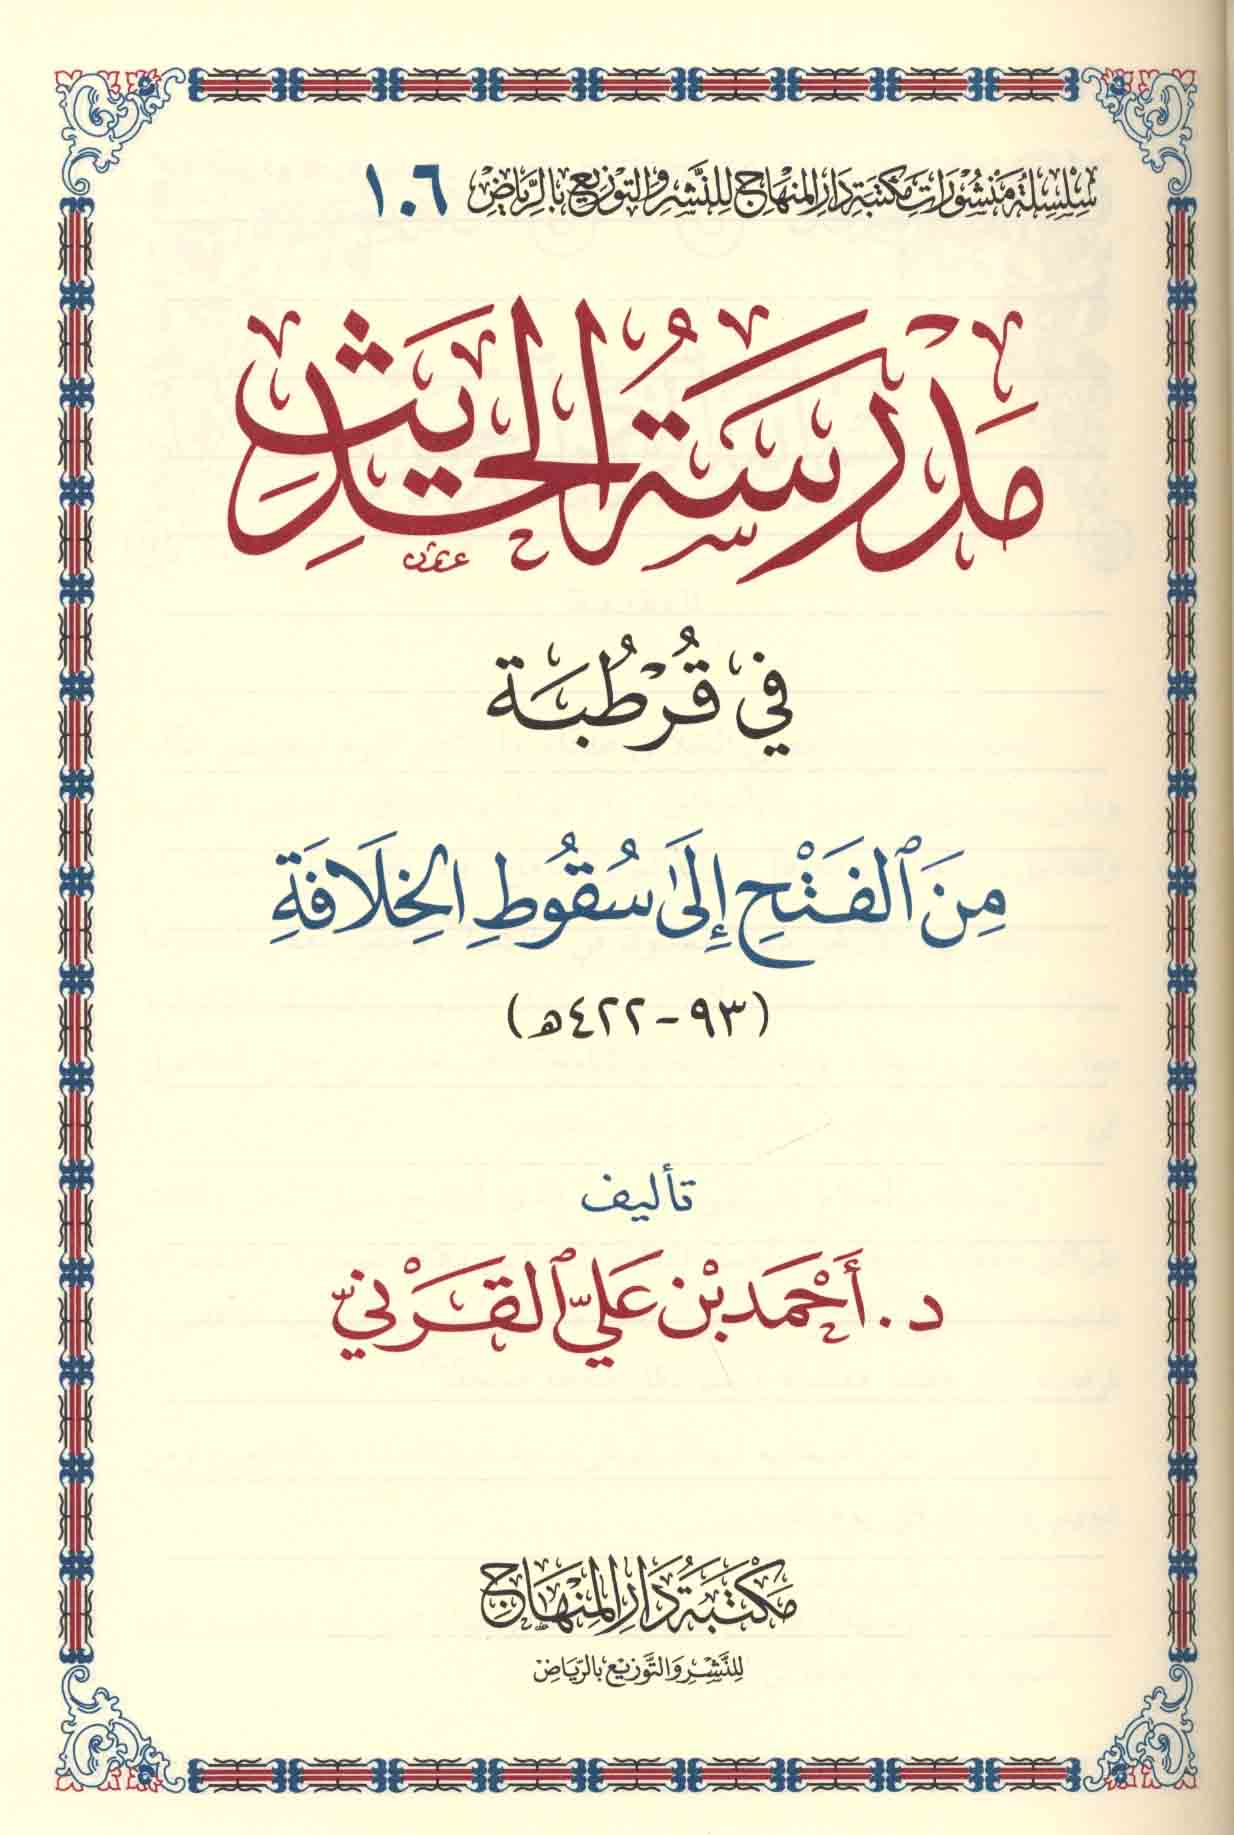 سِلْسِلَة مَنْشُورَات مَكتَبَة دَارِ المِنْهَاج لِلنَّشْرِ وَالتَّوْزِيع بِالرِّيَاض ١٠٦
مَدْرَسَةُ الحَدِيثِ
في قُرْطُبَة
مِنَ ٱلْفَتْحِ إِلَىٰ سُقُوطِ الخِلَافَةِ
(٩٣ - ٤٢٢ه)
تأليف
د. أَحْمَد بْن عَلي ٱلقَرْني
مَكْتَبَةُ دَارِ المِنْهَاجِ
لِلنَّشْرِ وَالتَّوْزِيع بِالرِّيَاض